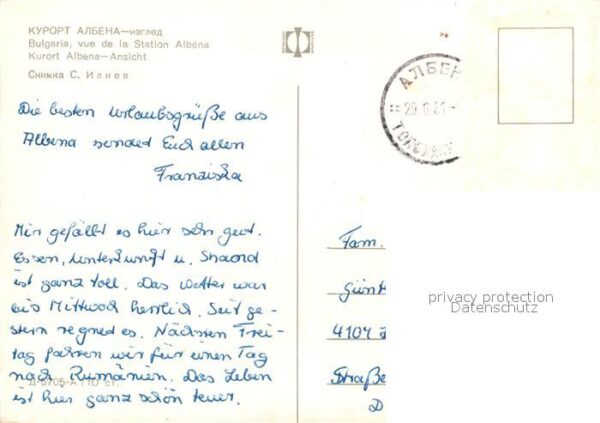 КУРОРТ АЛБЕНА—изглед
Bulgaria, vue de la Station Albéna
Kurort Albena—Ansicht
Снимка С. Илиев
Die besten Urlaubsgrüße aus
Albena sendet Euch allen
Franziska
Mir gefällt es hier sehr gut.
Essen, Unterkunft u. Strand
ist ganz toll. Das Wetter war
bis Mittwoch herrlich. Seit ge-
stern regnet es. Nächsten Frei-
tag fahren wir für einen Tag
nach Rumänien. Das Leben
ist hier ganz schön teuer.
Д-5705-А/10 ст.
АЛБЕН
Fam.
Günt
privacy protection
Datenschutz
4107
Straße
D